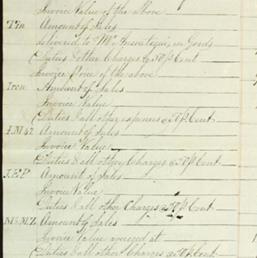 Invoice Value of the above
Tin Amount of Sales
delivered to Mr in Goods
Duties & other Charges @ 50 p Cent
Invoice Price of the above
Iron Amount of Sales
Invoice Value
Duties & all other expences @ 50 p Cent
Amount of Sales
Invoice Value
Duties & all other Charges @ 50 p Cent
J.E.P. Amount of Sales
Invoice Value
Duties & all other Charges @ 50 p Cent
Amount of Sales
Invoice Value at
Duties & all other Charges @ 50 p Cent